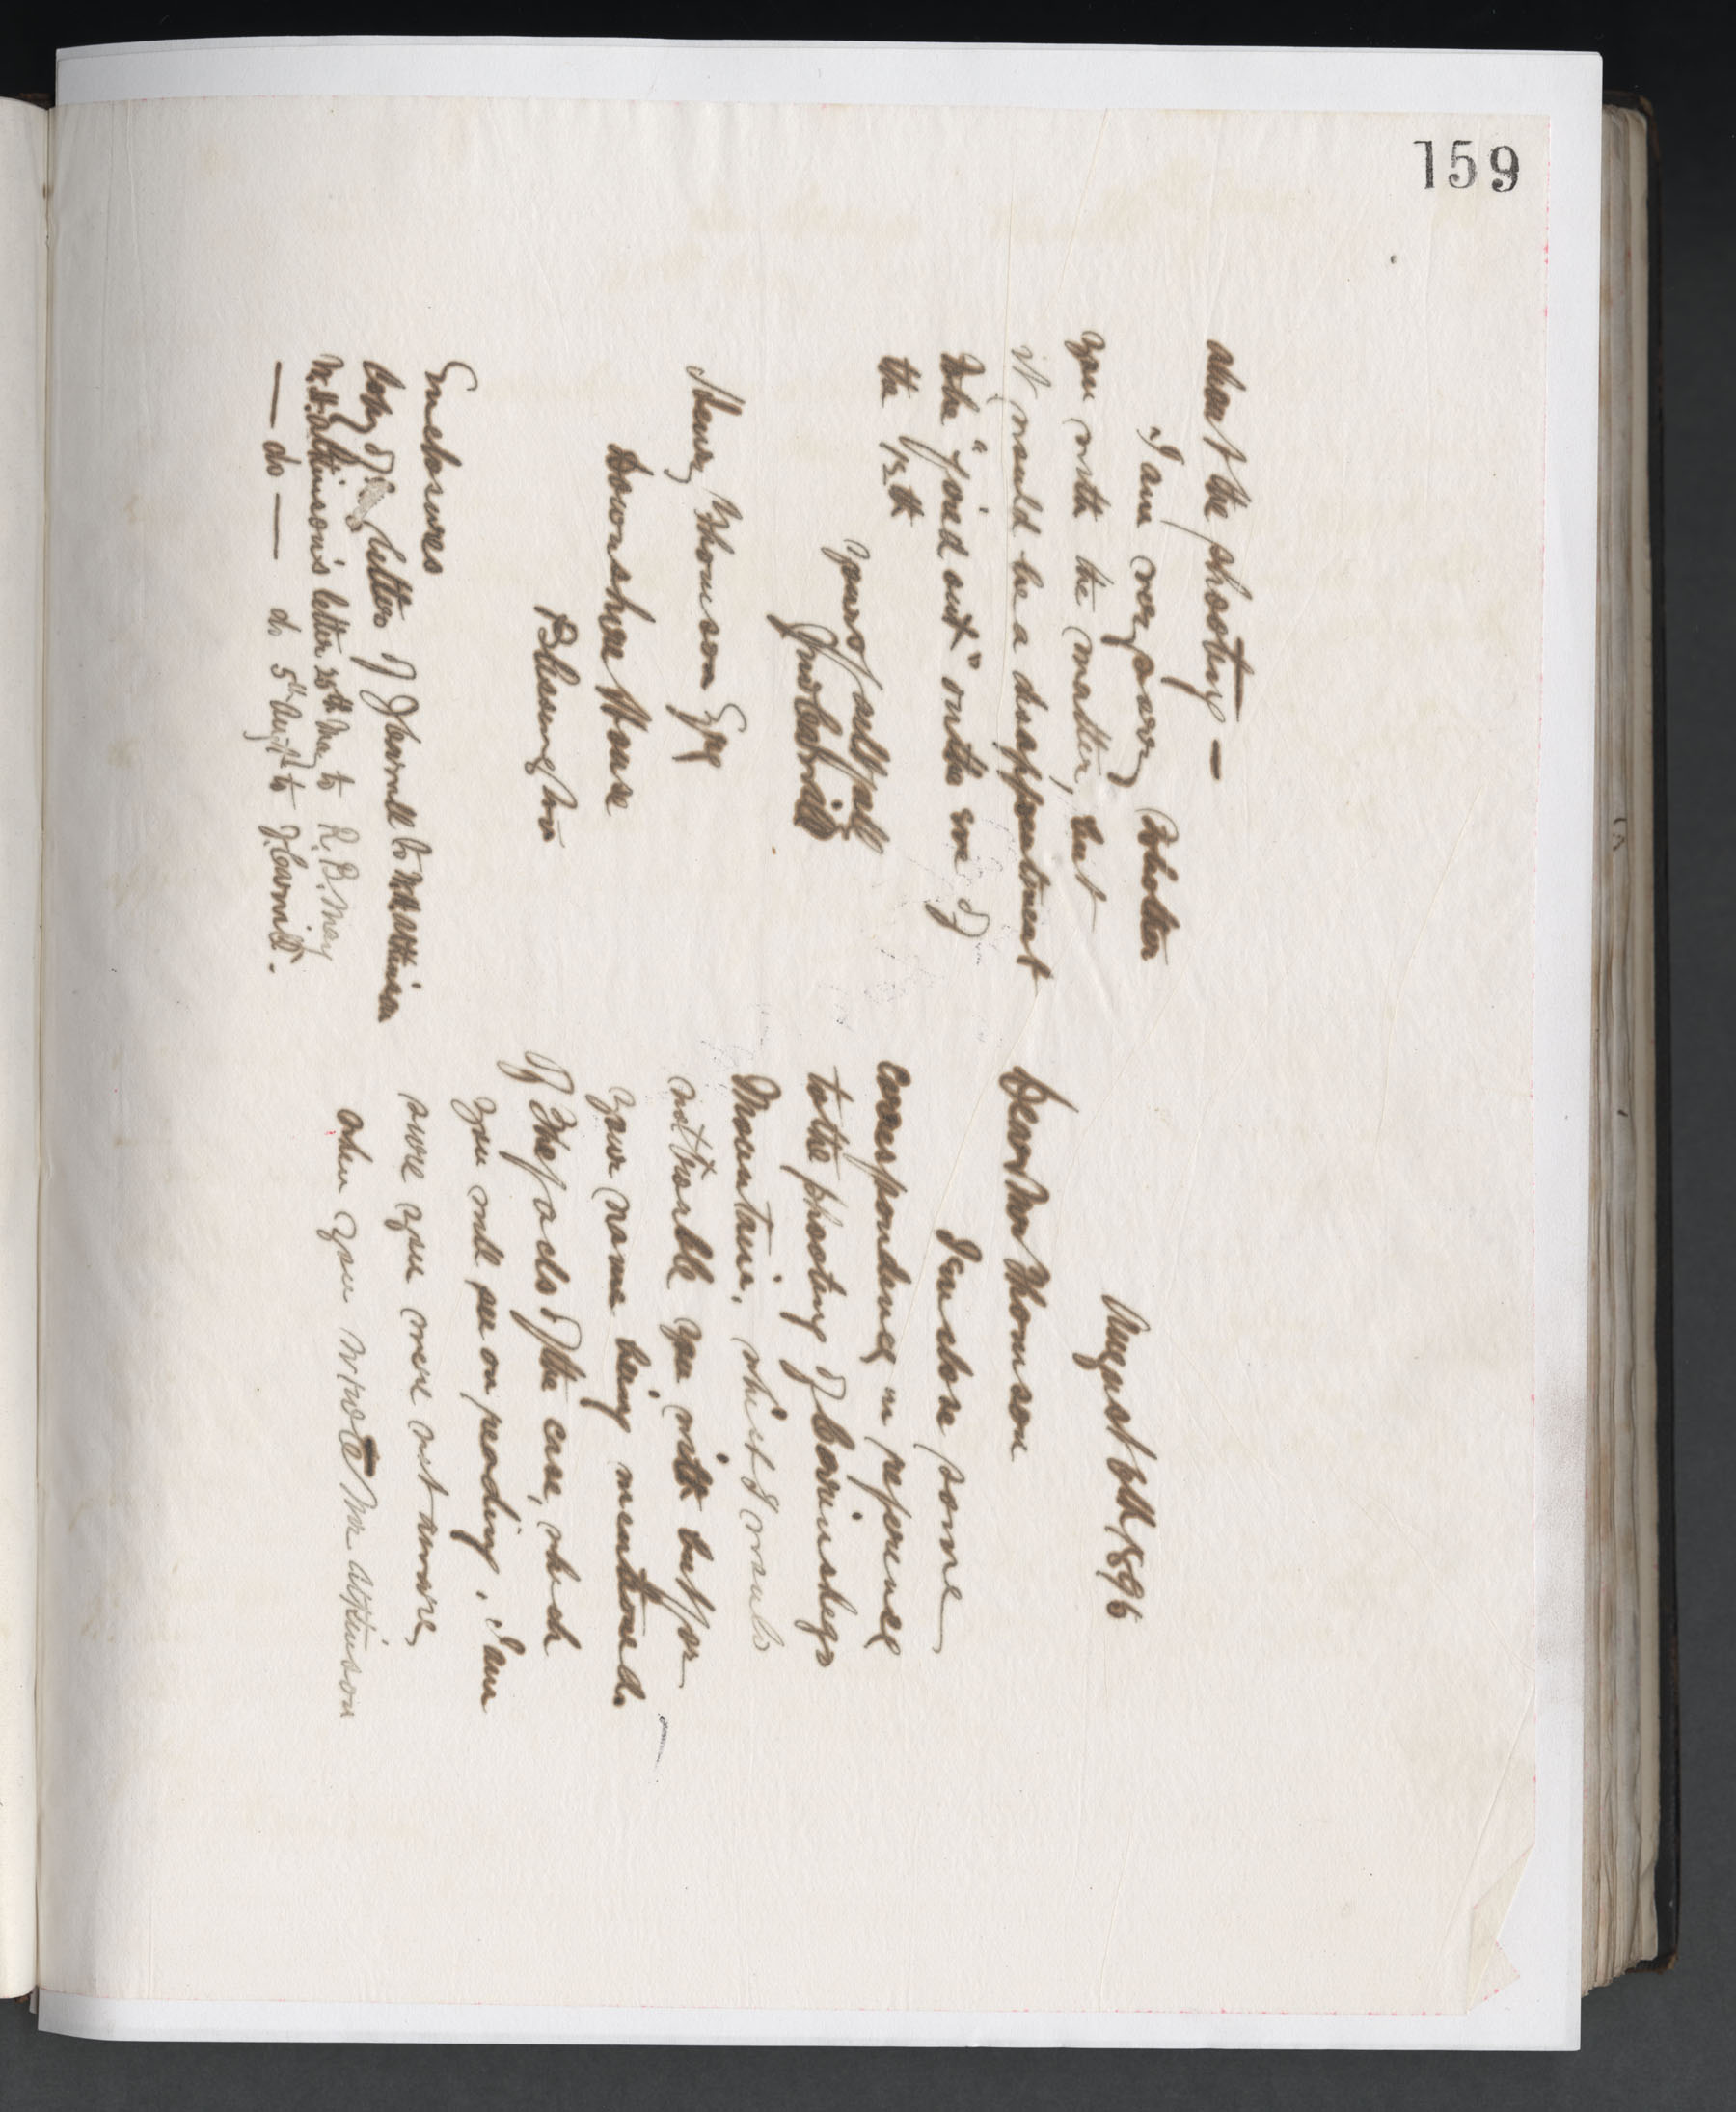 159
August 6th 1896
Dear Mr Thomson
I enclose some
correspondence in reference
to the shooting of Carrinshego
Mountain, which I would
not trouble you with but for
your name being mentioned.
Of the facts of the case, which
you will see on reading. I am
sure you were not aware,
when you wrote Mr Atkinson
about the shooting —
I am very sorry to bother
you with the matter, but
it would be a disappointment
to be "joed out" on the eve of
the 12th
Yours faithfully
Henry Thomson Esq
Downshire House
Blessington
Enclosures
Copy of letter of J Carvill to W.H. Atkinson
W.H. Atkinson's letter 25th May to R. B. May
— do — do 5th Augst to J. Carvill.